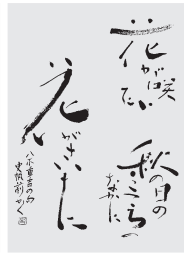 花が咲
いた
秋の日の
こころの
なかに
花がさいた
八木重吉の